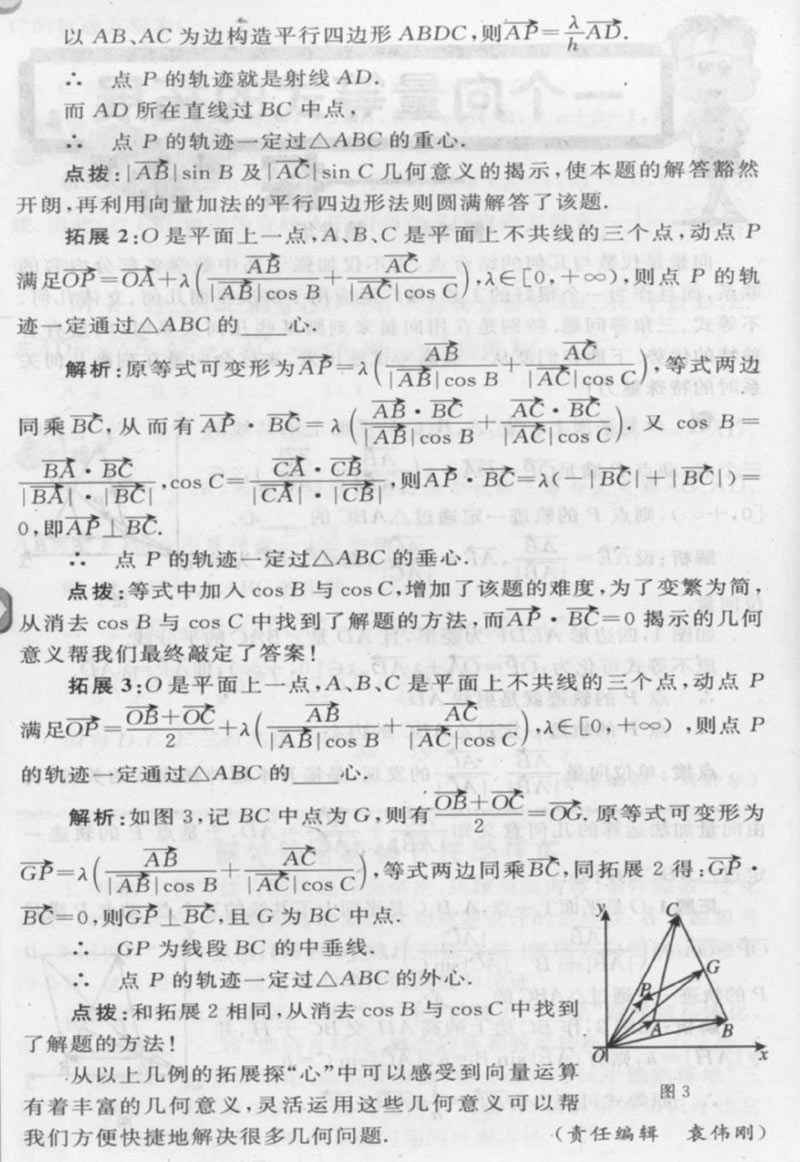 以 AB、AC 为边构造平行四边形 ABDC,则$\overrightarrow{AP}=\frac{\lambda}{h}\overrightarrow{AD}$.
∴ 点 P 的轨迹就是射线 AD.
而 AD 所在直线过 BC 中点,
∴ 点 P 的轨迹一定过△ABC 的重心.
点拨:$|\overrightarrow{AB}|\sin B$ 及$|\overrightarrow{AC}|\sin C$ 几何意义的揭示,使本题的解答豁然
开朗,再利用向量加法的平行四边形法则圆满解答了该题.
拓展 2:O 是平面上一点,A、B、C 是平面上不共线的三个点,动点 P
满足$\overrightarrow{OP}=\overrightarrow{OA}+\lambda\left(\frac{\overrightarrow{AB}}{|\overrightarrow{AB}|\cos B}+\frac{\overrightarrow{AC}}{|\overrightarrow{AC}|\cos C}\right)$,λ∈[0,+∞),则点 P 的轨
迹一定通过△ABC 的____心.
解析:原等式可变形为$\overrightarrow{AP}=\lambda\left(\frac{\overrightarrow{AB}}{|\overrightarrow{AB}|\cos B}+\frac{\overrightarrow{AC}}{|\overrightarrow{AC}|\cos C}\right)$,等式两边
同乘$\overrightarrow{BC}$,从而有$\overrightarrow{AP}\cdot\overrightarrow{BC}=\lambda\left(\frac{\overrightarrow{AB}\cdot\overrightarrow{BC}}{|\overrightarrow{AB}|\cos B}+\frac{\overrightarrow{AC}\cdot\overrightarrow{BC}}{|\overrightarrow{AC}|\cos C}\right)$. 又 cos B=
$\frac{\overrightarrow{BA}\cdot\overrightarrow{BC}}{|\overrightarrow{BA}|\cdot|\overrightarrow{BC}|}$,cos C=$\frac{\overrightarrow{CA}\cdot\overrightarrow{CB}}{|\overrightarrow{CA}|\cdot|\overrightarrow{CB}|}$,则$\overrightarrow{AP}\cdot\overrightarrow{BC}=\lambda(-|\overrightarrow{BC}|+|\overrightarrow{BC}|)=$
0,即$\overrightarrow{AP}\perp\overrightarrow{BC}$.
∴ 点 P 的轨迹一定过△ABC 的垂心.
点拨:等式中加入 cos B 与 cos C,增加了该题的难度,为了变繁为简,
从消去 cos B 与 cos C 中找到了解题的方法,而$\overrightarrow{AP}\cdot\overrightarrow{BC}=0$ 揭示的几何
意义帮我们最终敲定了答案!
拓展 3:O 是平面上一点,A、B、C 是平面上不共线的三个点,动点 P
满足$\overrightarrow{OP}=\frac{\overrightarrow{OB}+\overrightarrow{OC}}{2}+\lambda\left(\frac{\overrightarrow{AB}}{|\overrightarrow{AB}|\cos B}+\frac{\overrightarrow{AC}}{|\overrightarrow{AC}|\cos C}\right)$,λ∈[0,+∞),则点 P
的轨迹一定通过△ABC 的____心.
解析:如图 3,记 BC 中点为 G,则有$\frac{\overrightarrow{OB}+\overrightarrow{OC}}{2}=\overrightarrow{OG}$. 原等式可变形为
$\overrightarrow{GP}=\lambda\left(\frac{\overrightarrow{AB}}{|\overrightarrow{AB}|\cos B}+\frac{\overrightarrow{AC}}{|\overrightarrow{AC}|\cos C}\right)$,等式两边同乘$\overrightarrow{BC}$,同拓展 2 得:$\overrightarrow{GP}\cdot$
$\overrightarrow{BC}=0$,则$\overrightarrow{GP}\perp\overrightarrow{BC}$,且 G 为 BC 中点.
∴ GP 为线段 BC 的中垂线.
∴ 点 P 的轨迹一定过△ABC 的外心.
点拨:和拓展 2 相同,从消去 cos B 与 cos C 中找到
了解题的方法!
从以上几例的拓展探“心”中可以感受到向量运算
有着丰富的几何意义,灵活运用这些几何意义可以帮
我们方便快捷地解决很多几何问题.
y
C
G
P
A
B
O
x
图 3
(责任编辑 袁伟刚)